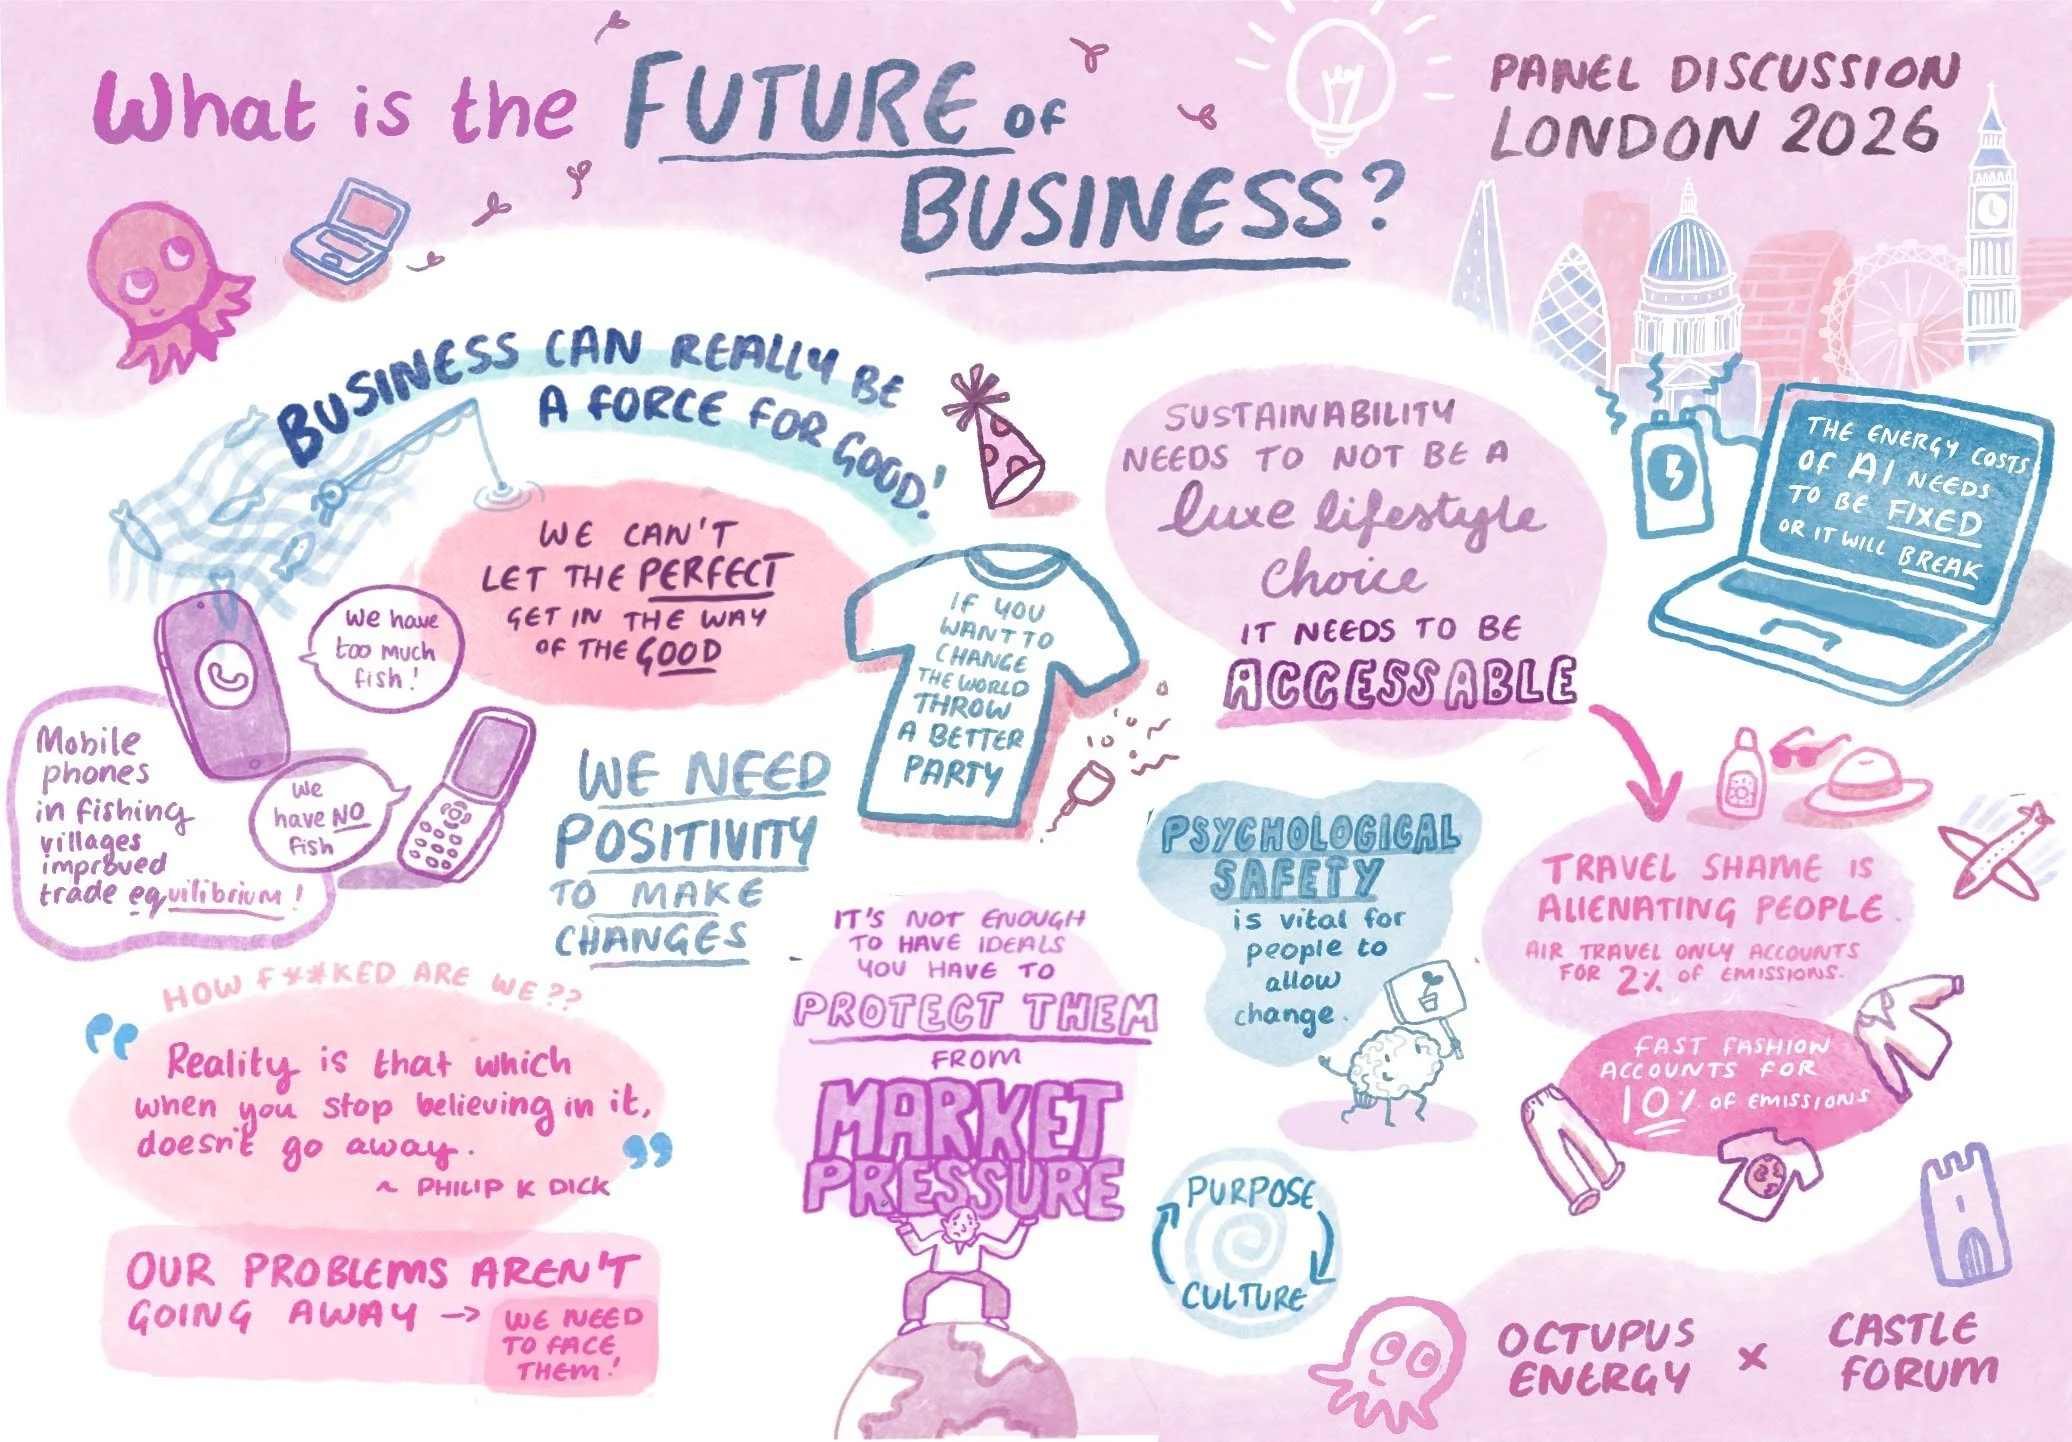 What is the FUTURE OF
BUSINESS?
PANEL DISCUSSION
LONDON 2026
BUSINESS CAN REALLY BE
A FORCE FOR GOOD!
WE CAN'T
LET THE PERFECT
GET IN THE WAY
OF THE GOOD
We have
too much
fish!
We
have NO
fish
Mobile
phones
in fishing
villages
improved
trade equilibrium!
WE NEED
POSITIVITY
TO MAKE
CHANGES
IF YOU
WANT TO
CHANGE
THE WORLD
THROW
A BETTER
PARTY
SUSTAINABILITY
NEEDS TO NOT BE A
luxe lifestyle
choice
IT NEEDS TO BE
ACCESSABLE
THE ENERGY COSTS
OF AI NEEDS
TO BE FIXED
OR IT WILL BREAK
TRAVEL SHAME IS
ALIENATING PEOPLE.
AIR TRAVEL ONLY ACCOUNTS
FOR 2% OF EMISSIONS.
FAST FASHION
ACCOUNTS FOR
10% OF EMISSIONS
PSYCHOLOGICAL
SAFETY
is vital for
people to
allow
change.
IT'S NOT ENOUGH
TO HAVE IDEALS
YOU HAVE TO
PROTECT THEM
FROM
MARKET
PRESSURE
HOW F**KED ARE WE??
"Reality is that which
when you stop believing in it,
doesn't go away."
~ PHILIP K DICK
OUR PROBLEMS AREN'T
GOING AWAY →
WE NEED
TO FACE
THEM!
PURPOSE
CULTURE
OCTUPUS
ENERGY
x
CASTLE
FORUM